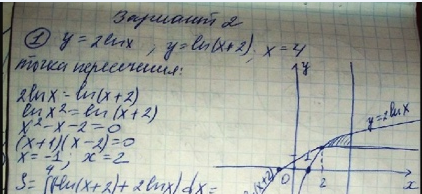 Вариант 2
① y = 2lnx , y = ln(x+2); x = 4
точка пересечения:
2lnx = ln(x+2)
lnx² = ln(x+2)
x² - x - 2 = 0
(x+1)(x-2) = 0
x = -1; x = 2
y
y=2lnx
1
0
2
x
ln(x+2) + 2lnx) dx =